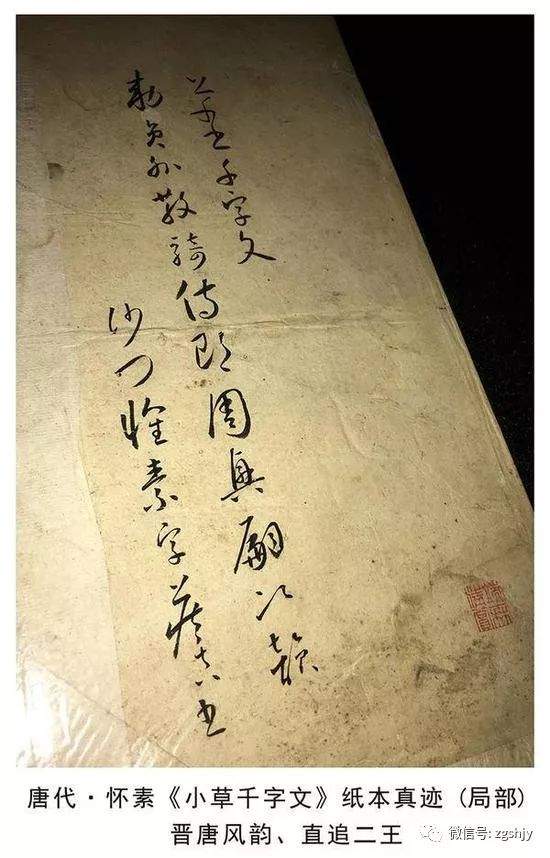 草書千字文
敕員外散騎侍郎周興嗣次韻
沙門懷素字藏真書
唐代·怀素《小草千字文》纸本真迹(局部)
晋唐风韵、直追二王
微信号: zgshjy